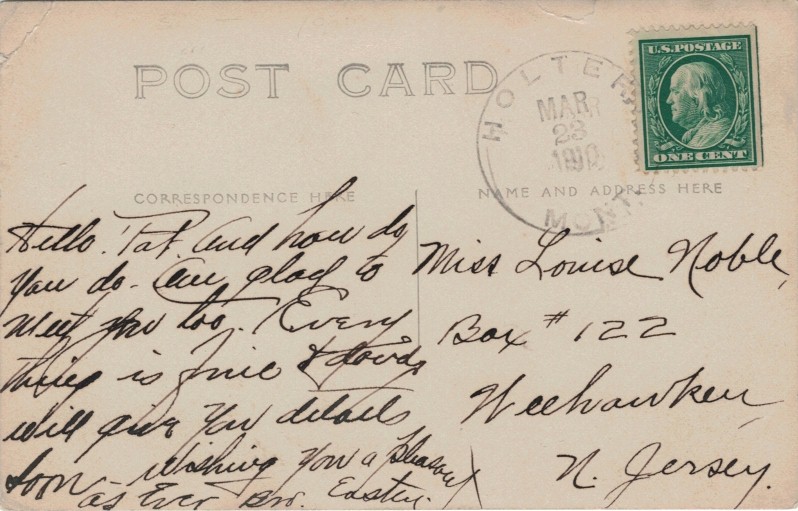 POST CARD
U.S. POSTAGE
ONE CENT
HOLTER,
MAR
23
1910
MONT.
CORRESPONDENCE HERE
NAME AND ADDRESS HERE
Hello. Pat. and how do
you do. am glad to
meet you too. Every
thing is fine &
will give you details
soon wishing you a pleasant
as Ever Easter.
Miss Louise Noble,
Box # 122
Weehawken,
N. Jersey.